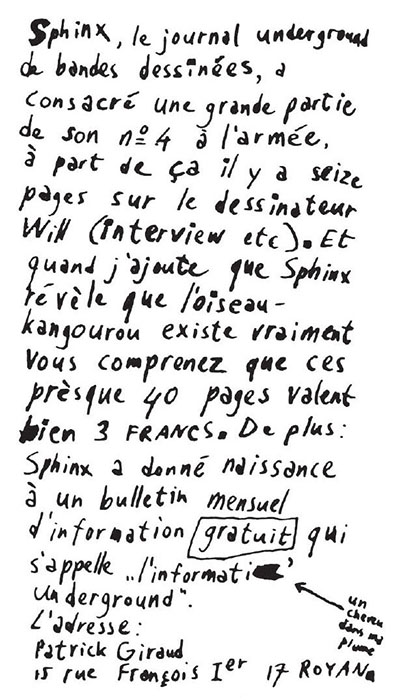 Sphinx, le journal underground
de bandes dessinées, a
consacré une grande partie
de son nº 4 à l'armée,
à part de ça il y a seize
pages sur le dessinateur
Will (interview etc). Et
quand j'ajoute que Sphinx
révèle que l'oiseau-
kangourou existe vraiment
Vous comprenez que ces
prèsque 40 pages valent
bien 3 FRANCS. De plus:
Sphinx a donné naissance
à un bulletin mensuel
d'information gratuit qui
s'appelle „l'informati
underground".
un
cheveu
dans ma
plume
L'adresse:
Patrick Giraud
15 rue François Ier 17 ROYAN.